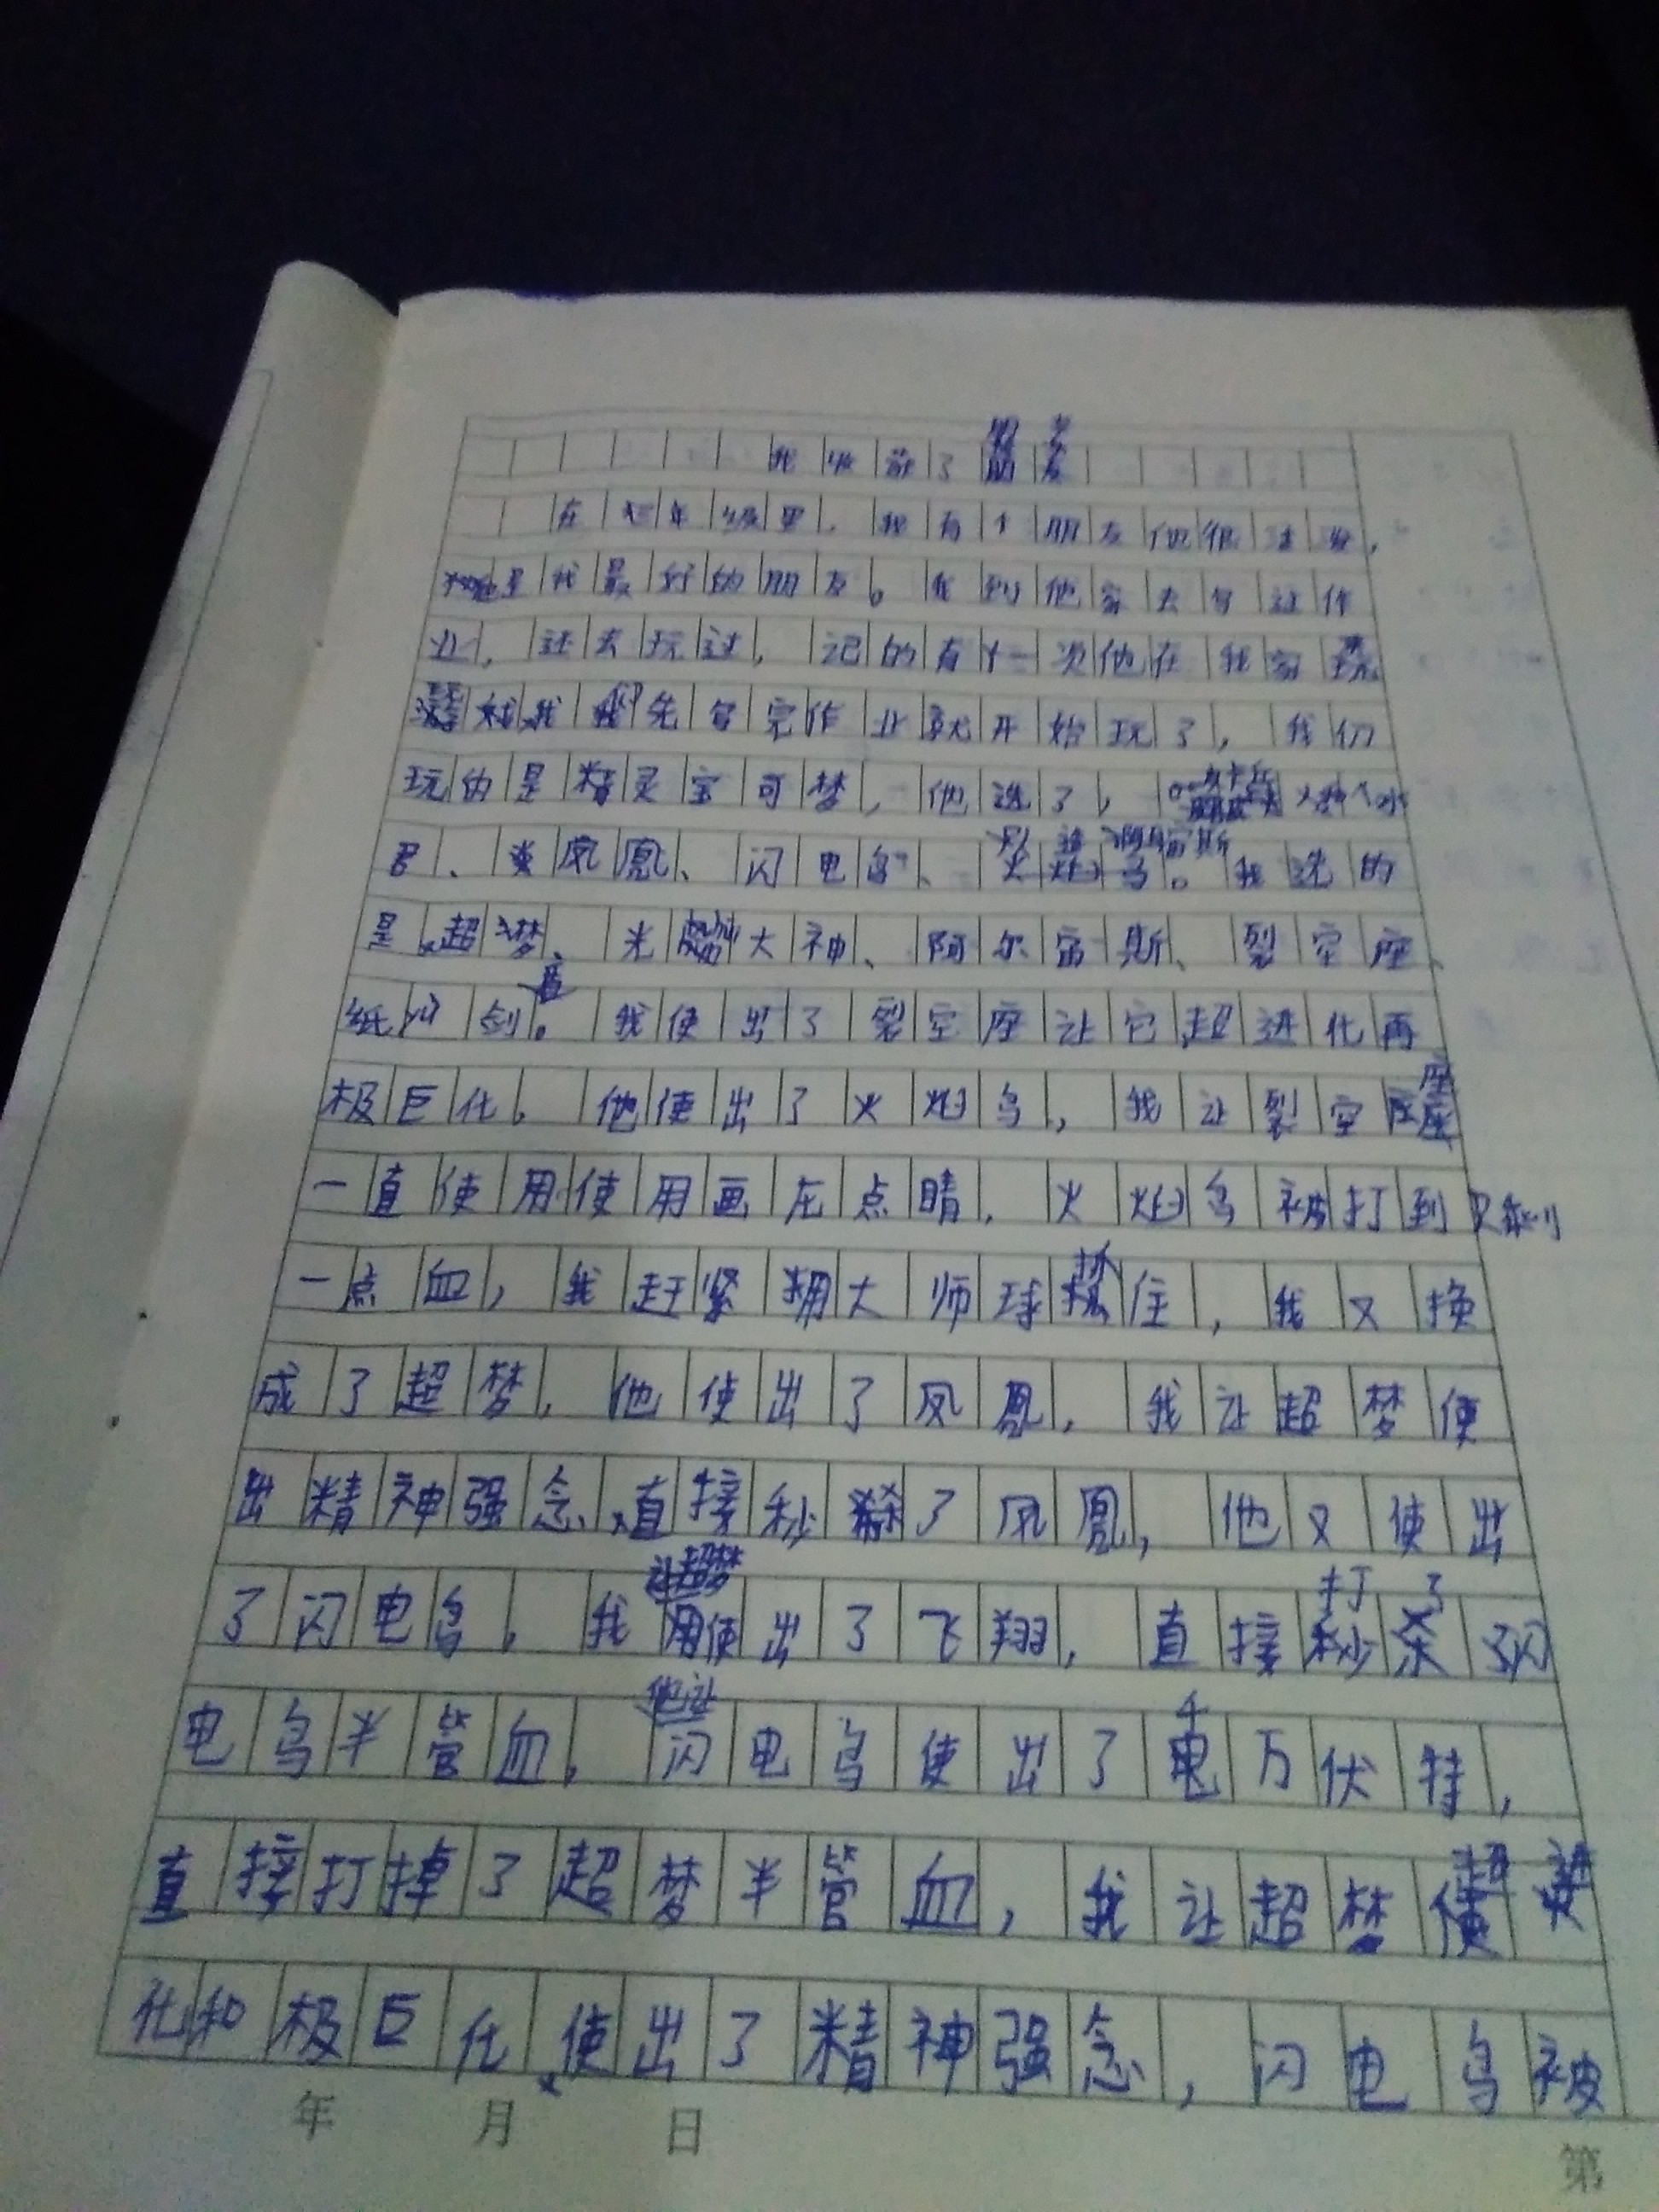 我收获了朋友
在年级里，我有个朋友他很
他是我最好的朋友。我到他家去写过作
业，还去玩过，记的有一次他在我家玩
我们先写完作业就开始玩了，我们
玩的是精灵宝可梦，他选了，水
君、炎凤凰、闪电鸟、阿尔宙斯。我选的
是超梦、光大神、阿尔宙斯、裂空座、
纸御剑。我使出了裂空座让它超进化再
极巨化。他使出了火焰鸟，我让裂空座
一直使用使用画龙点睛，火焰鸟被打到只剩
一点血，我赶紧用大师球抓住，我又换
成了超梦，他使出了凤凰，我让超梦使
出精神强念、直接秒杀了凤凰，他又使出
了闪电鸟，我让超梦使出了飞翔，直接打了闪
电鸟半管血，他让闪电鸟使出了千万伏特，
直接打掉了超梦半管血，我让超梦超进
化和极巨化使出了精神强念，闪电鸟被
年 月 日
第